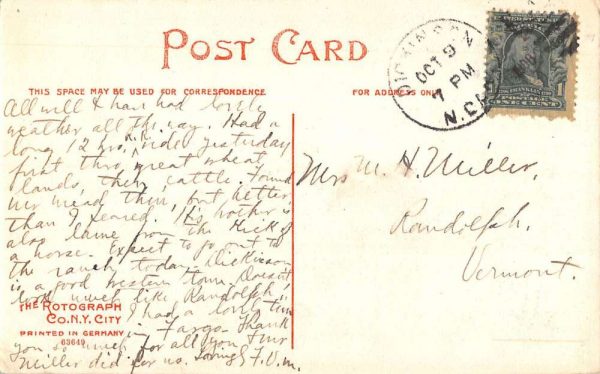 POST CARD
THIS SPACE MAY BE USED FOR CORRESPONDENCE.
FOR ADDRESS ONLY
DICKINSON
OCT 9
7 PM
N.DAK.
POSTAGE
ONE CENT
1
All well & have had lovely
weather all the way. Had a
long 12 hrs. R.R. ride yesterday
first thro, great wheat,
lands, then, cattle. Found
mead thin, but better,
than I feared. His mother is
also lame from the kick of
a horse. Expect to go out to
the ranch today. Dickinson
is a good western town. Doesn't
look much like Randolph!!
I had a lovely time
in Fargo. Thank
you so much for all you & mr
Miller did for us. Lovingly F.V.m.
THE ROTOGRAPH
CO. N.Y. CITY
PRINTED IN GERMANY
63649
Mrs M. H. Miller,
Randolph.
Vermont.